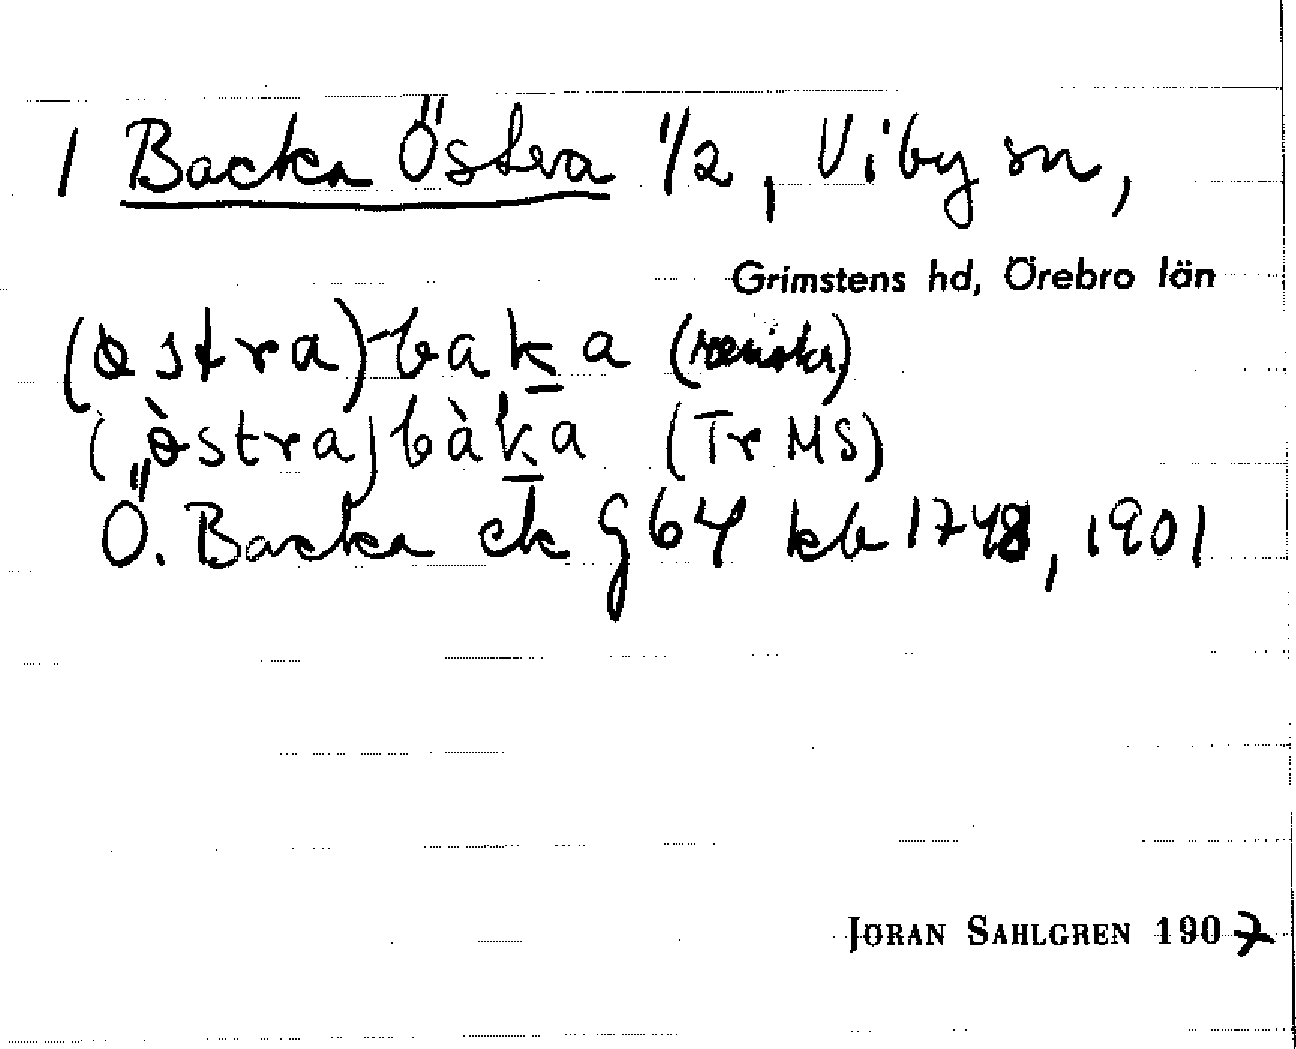 1 Backa Östra 1/2, Viby sn,
Grimstens hd, Örebro län
(østra) baka
(østra) bàka (Tr MS)
Ö. Backa ek g 64 kb 1748, 1901
JÖRAN SAHLGREN 1907